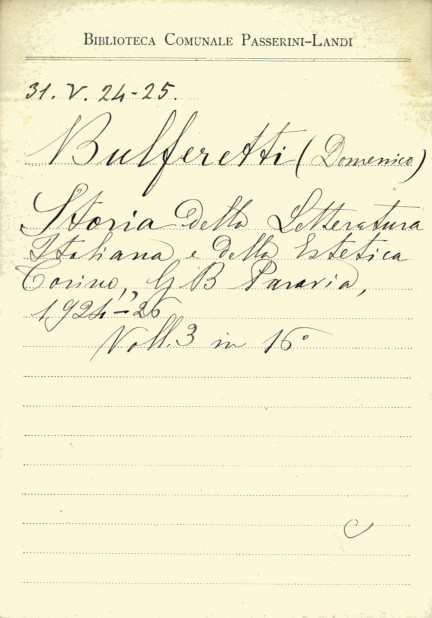 BIBLIOTECA COMUNALE PASSERINI-LANDI
31. V. 24-25.
Bulferetti (Domenico)
Storia della Letteratura
Italiana e della Estetica
Torino, G B Paravia,
1924-26
Voll. 3 in 16°
C